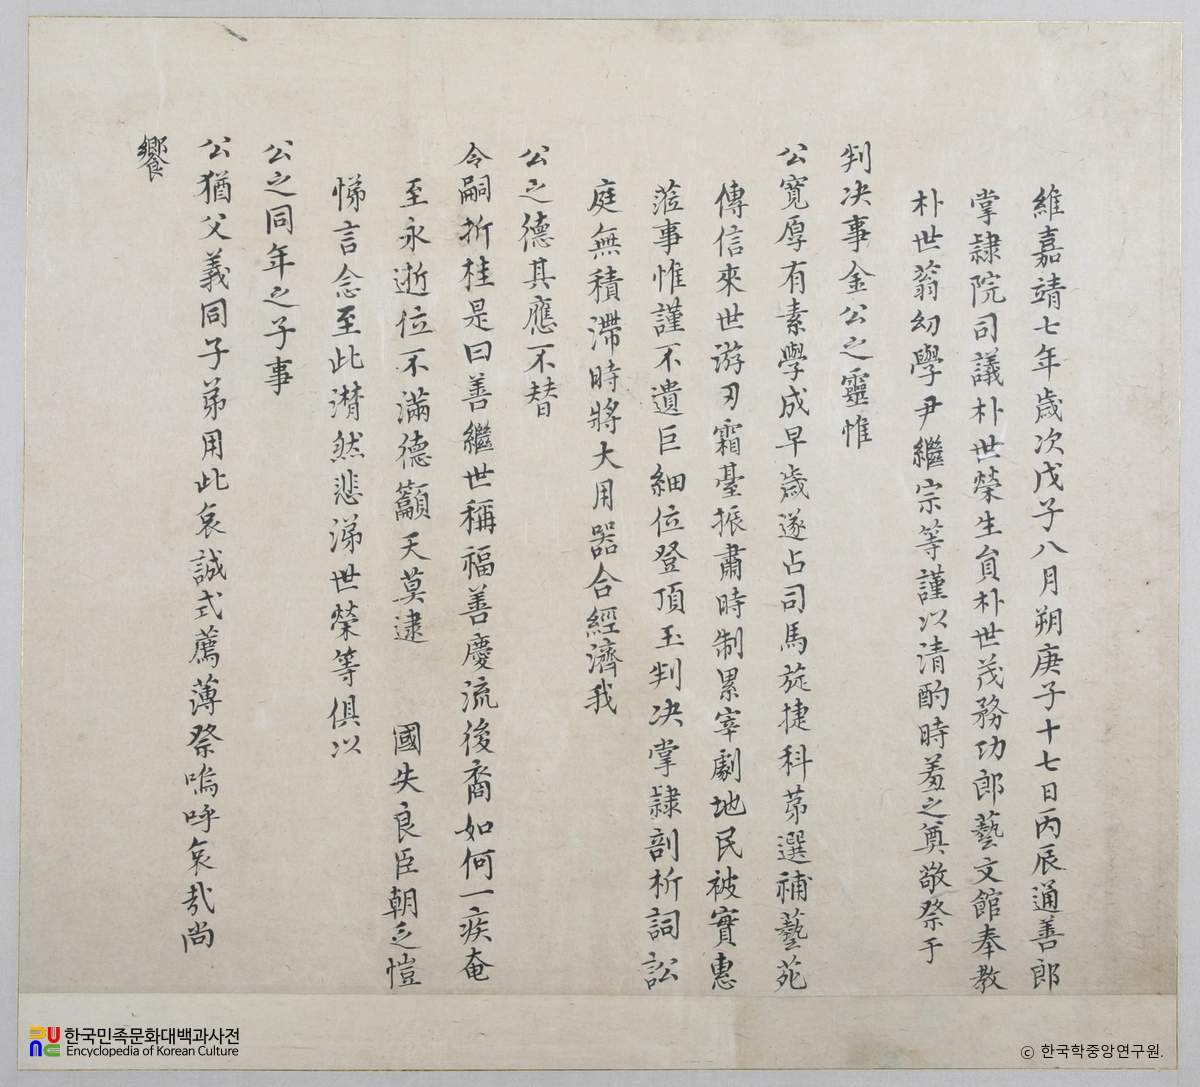 維嘉靖七年歲次戊子八月朔庚子十七日丙辰通善郎
掌隷院司議朴世榮生員朴世茂務功郎藝文館奉教
朴世蓊幼學尹繼宗等謹以清酌時羞之奠敬祭于
判決事金公之靈惟
公寬厚有素學成早歲遂占司馬旋捷科第選補藝苑
傳信來世游刃霜臺振肅時制累宰劇地民被實惠
莅事惟謹不遺巨細位登頂玉判決掌隷剖析詞訟
庭無積滯時將大用器合經濟我
公之德其應不替
令嗣折桂是曰善繼世稱福善慶流後裔如何一疾奄
至永逝位不滿德籲天莫逮 國失良臣朝乏愷
悌言念至此潸然悲涕世榮等俱以
公之同年之子事
公猶父義同子弟用此哀誠式薦薄祭嗚呼哀哉尚
饗
한국민족문화대백과사전
Encyclopedia of Korean Culture
ⓒ 한국학중앙연구원.